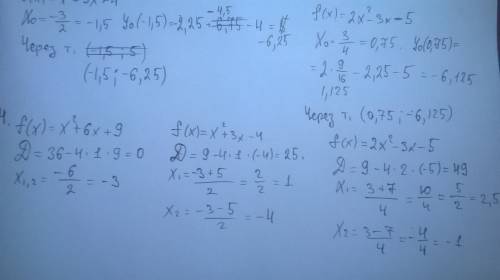 X₀ = -3/2 = -1,5 y₀(-1,5) = 2,25 -4,5 - 4 =
-6,25
Через т. (-1,5; 5)
(-1,5; -6,25)
f(x) = 2x² - 3x - 5
X₀ = 3/4 = 0,75. y₀(0,75) =
= 2 · 9/16 - 2,25 - 5 = -6,125
1,125
Через т. (0,75; -6,125)
4. f(x) = x² + 6x + 9
D = 36 - 4 · 1 · 9 = 0
X₁,₂ = -6/2 = -3
f(x) = x² + 3x - 4
D = 9 - 4 · 1 · (-4) = 25.
X₁ = -3+5/2 = 2/2 = 1
X₂ = -3-5/2 = -4
f(x) = 2x² - 3x - 5
D = 9 - 4 · 2 · (-5) = 49
X₁ = 3+7/4 = 10/4 = 5/2 = 2,5
X₂ = 3-7/4 = -4/4 = -1